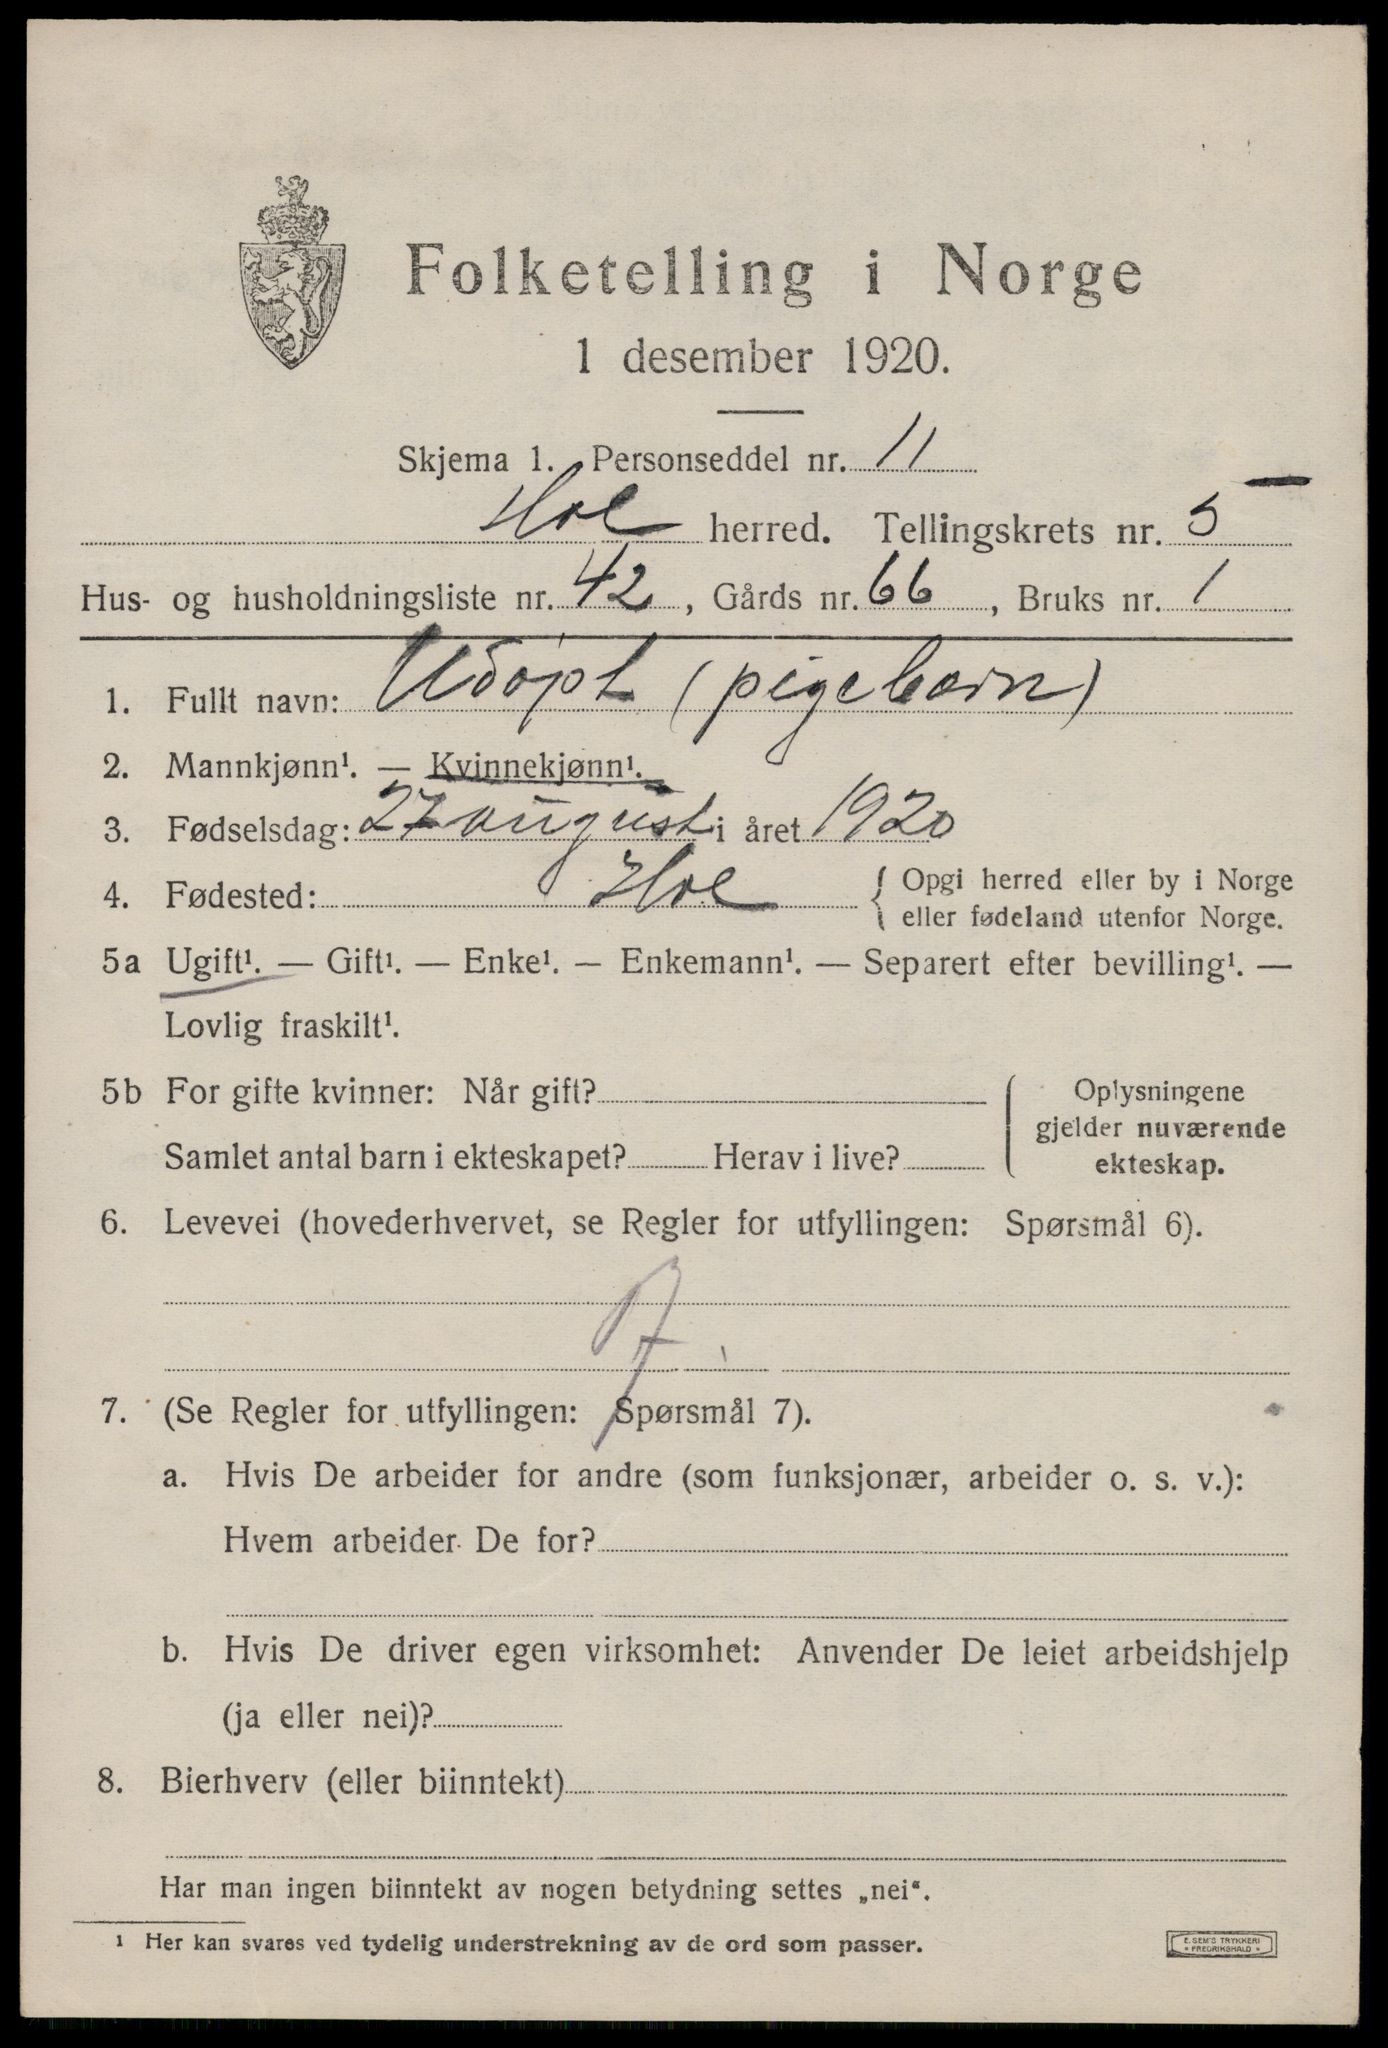 Folketelling i Norge
1 desember 1920.
Skjema 1. Personseddel nr. 11
Hol herred. Tellingskrets nr. 5
Hus- og husholdningsliste nr. 42, Gårds nr. 66, Bruks nr. 1
1. Fullt navn: Udøpt (pigebarn)
2. Mannkjønn¹. — Kvinnekjønn¹.
3. Fødselsdag: 27 august i året 1920
4. Fødested: Hol { Opgi herred eller by i Norge
eller fødeland utenfor Norge.
5a Ugift¹. — Gift¹. — Enke¹. — Enkemann¹. — Separert efter bevilling¹. —
Lovlig fraskilt¹.
5b For gifte kvinner: Når gift? { Oplysningene
gjelder nuværende
Samlet antal barn i ekteskapet? Herav i live? ekteskap.
6. Levevei (hovederhvervet, se Regler for utfyllingen: Spørsmål 6).
7. (Se Regler for utfyllingen: Spørsmål 7).
a. Hvis De arbeider for andre (som funksjonær, arbeider o. s. v.):
Hvem arbeider De for?
b. Hvis De driver egen virksomhet: Anvender De leiet arbeidshjelp
(ja eller nei)?
8. Bierhverv (eller biinntekt)
Har man ingen biinntekt av nogen betydning settes „nei".
¹ Her kan svares ved tydelig understrekning av de ord som passer.
E. SEM'S TRYKKERI
• FREDRIKSHALD •